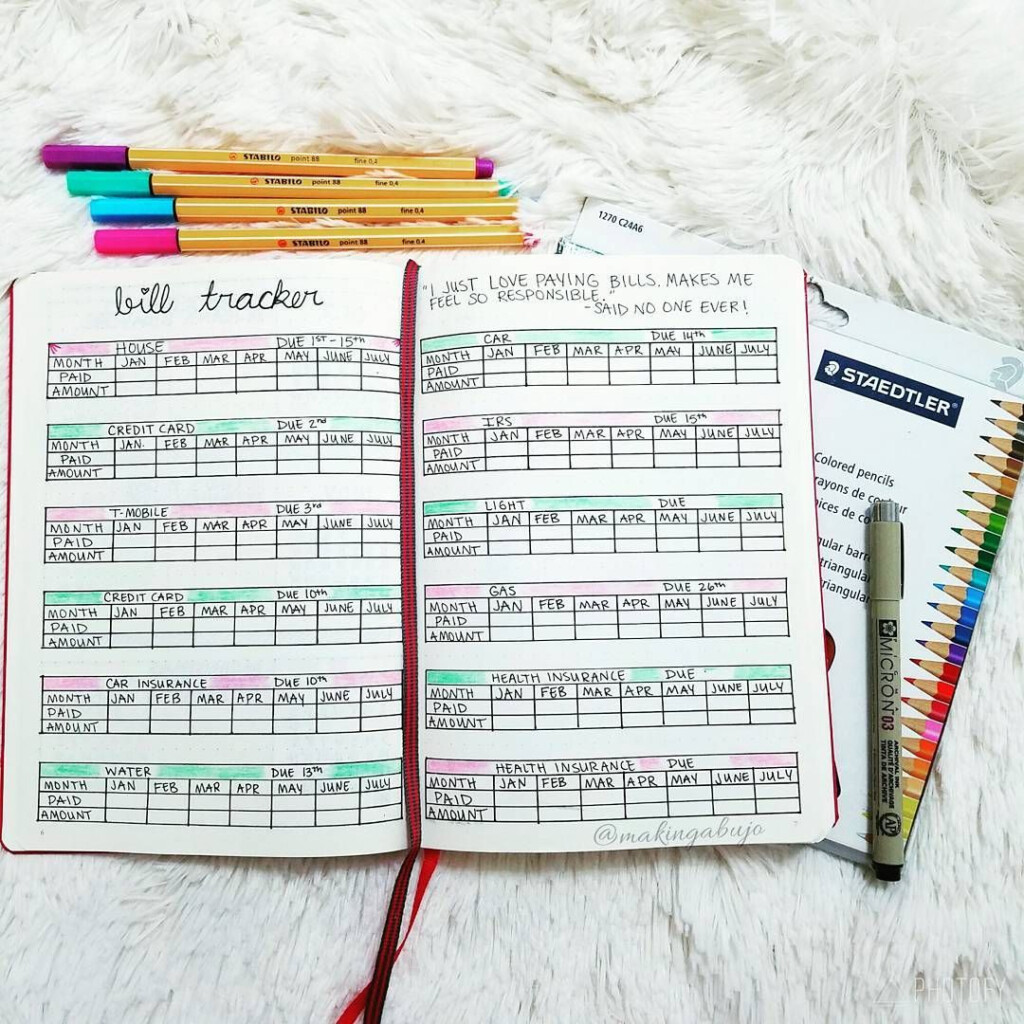 STABILO point 88 fine 0,4
STABILO point 88 fine 0,4
STABILO point 88 fine 0,4
STABILO point 88 fine 0,4
1270 C24A6
bill tracker
HOUSE DUE 1ST-15th
MONTH JAN FEB MAR APR MAY JUNE JULY
PAID
AMOUNT
CREDIT CARD DUE 2nd
MONTH JAN. FEB MAR APR MAY JUNE JULY
PAID
AMOUNT
T-MOBILE DUE 3rd
MONTH JAN FEB MAR APR MAY JUNE JULY
PAID
AMOUNT
CREDIT CARD DUE 10th
MONTH JAN FEB MAR APR MAY JUNE JULY
PAID
AMOUNT
CAR INSURANCE DUE 10th
MONTH JAN FEB MAR APR MAY JUNE JULY
PAID
AMOUNT
WATER DUE 13th
MONTH JAN FEB MAR APR MAY JUNE JULY
PAID
AMOUNT
6
"I JUST LOVE PAYING BILLS, MAKES ME
FEEL SO RESPONSIBLE."
-SAID NO ONE EVER!
CAR DUE 14th
MONTH JAN FEB MAR APR MAY JUNE JULY
PAID
AMOUNT
IRS DUE 15th
MONTH JAN FEB MAR APR MAY JUNE JULY
PAID
AMOUNT
LIGHT DUE
MONTH JAN FEB MAR APR MAY JUNE JULY
PAID
AMOUNT
GAS DUE 26th
MONTH JAN FEB MAR APR MAY JUNE JULY
PAID
AMOUNT
HEALTH INSURANCE DUE
MONTH JAN FEB MAR APR MAY JUNE JULY
PAID
AMOUNT
HEALTH INSURANCE DUE
MONTH JAN FEB MAR APR MAY JUNE JULY
PAID
AMOUNT
@makingabujo
STAEDTLER
Colored pencils
MICRON 03
ARCHIVAL INK
PHOTOFY